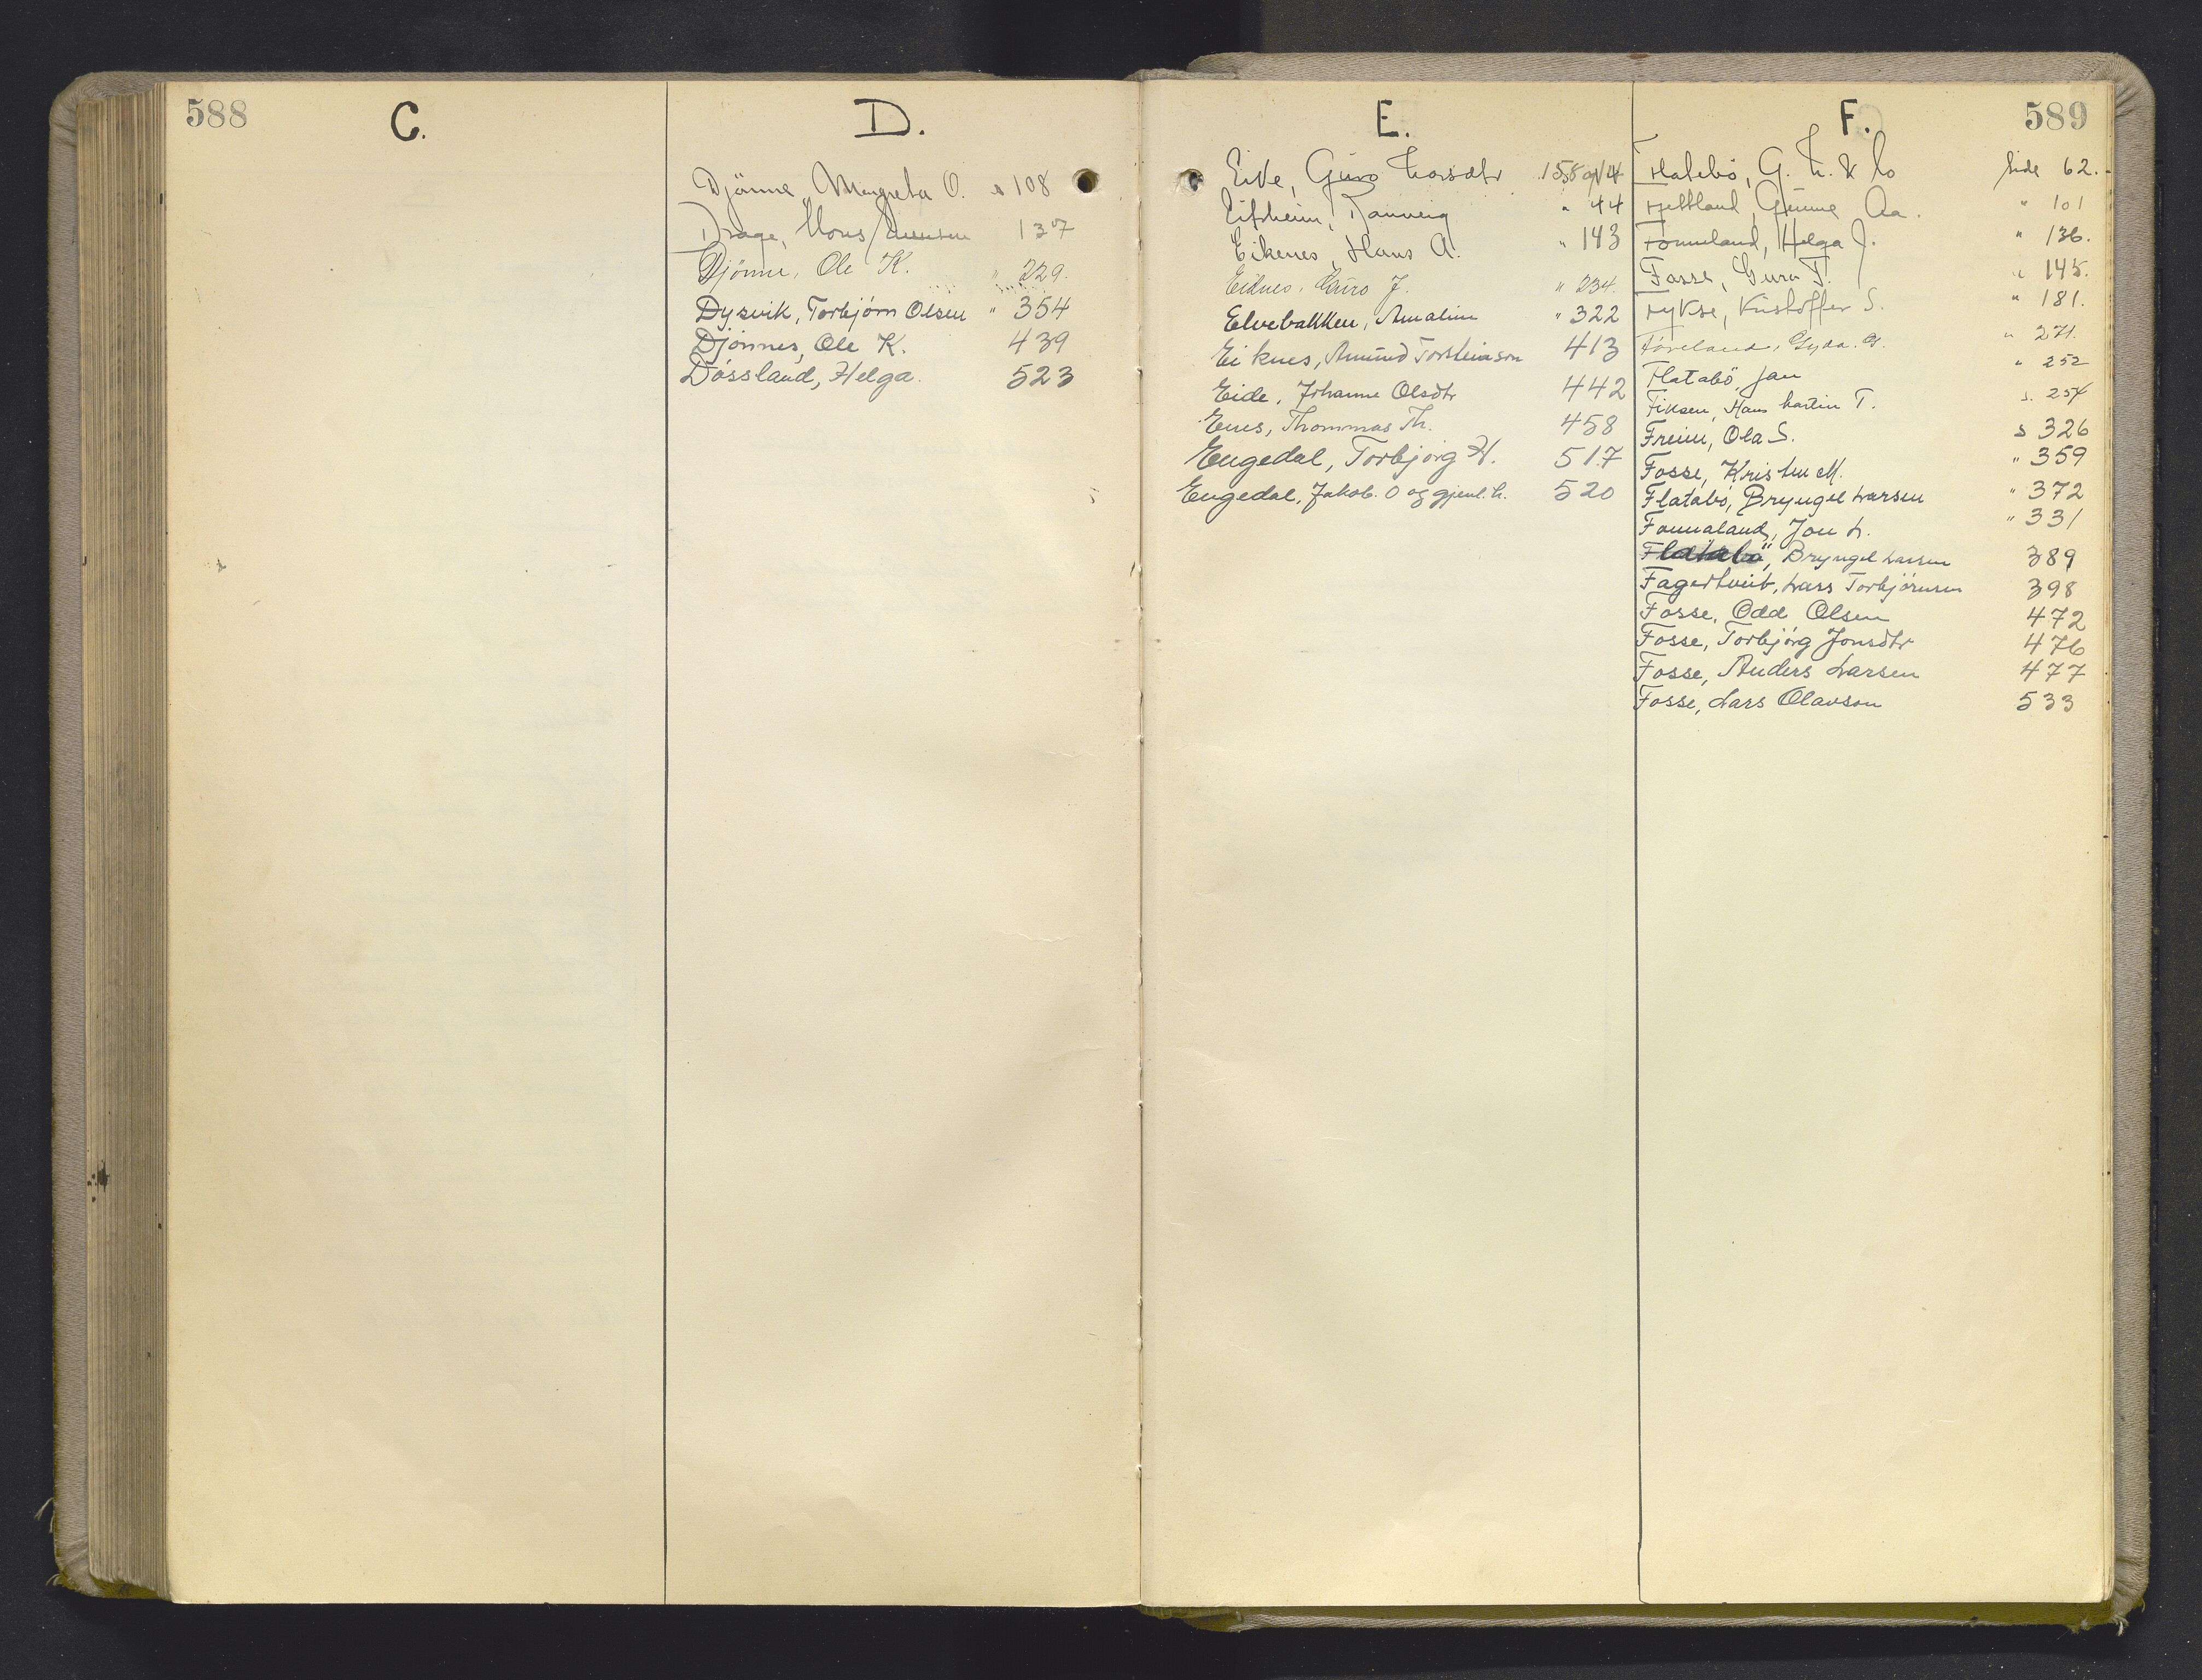 588
C.
D.
Djönne, Margreta O. s 108
Drage, Mons 137
Djönne, Ole K. " 229.
Dysvik, Torbjörn Olsen " 354
Djönnes, Ole K. 439
Dössland, Helga. 523
E.
Eide, Guro Larsdtr 158 og 14
Eitrheim, Ranveig " 44
Eikenes, Hans A. " 143
Eiknes, Guro J. " 234.
Elvebakken, Amaline " 322
Eiknes, Amund Torsteinson 413
Eide, Johanne Olsdtr 442
Enes, Thommas Th. 458
Engedal, Torbjörg H. 517
Engedal, Jakob. O og gjenl. h. 520
F.
589
Flatebö, G. L. & Co Side 62.
Fjetland, Gunne Aa. " 101
Fonneland, Helga J. " 136.
Fosse, Guro T. " 145.
Fykse, Kristoffer S. " 181.
Föreland, Gyda. G. " 271.
Flatabö, Jan " 252
Fiksen, Hans Martin T. s. 254
Freim, Ola S. s 326
Fosse, Kristen M. " 359
Flatabö, Bryngel Larsen " 372
Fonnaland, Jon L. " 331
Flatabö, Bryngel Larsen 389
Fagertveit, Lars Torbjörnsen 398
Fosse, Odd Olsen 472
Fosse, Torbjörg Jonsdtr 476
Fosse, Anders Larsen 477
Fosse, Lars Olavson 533